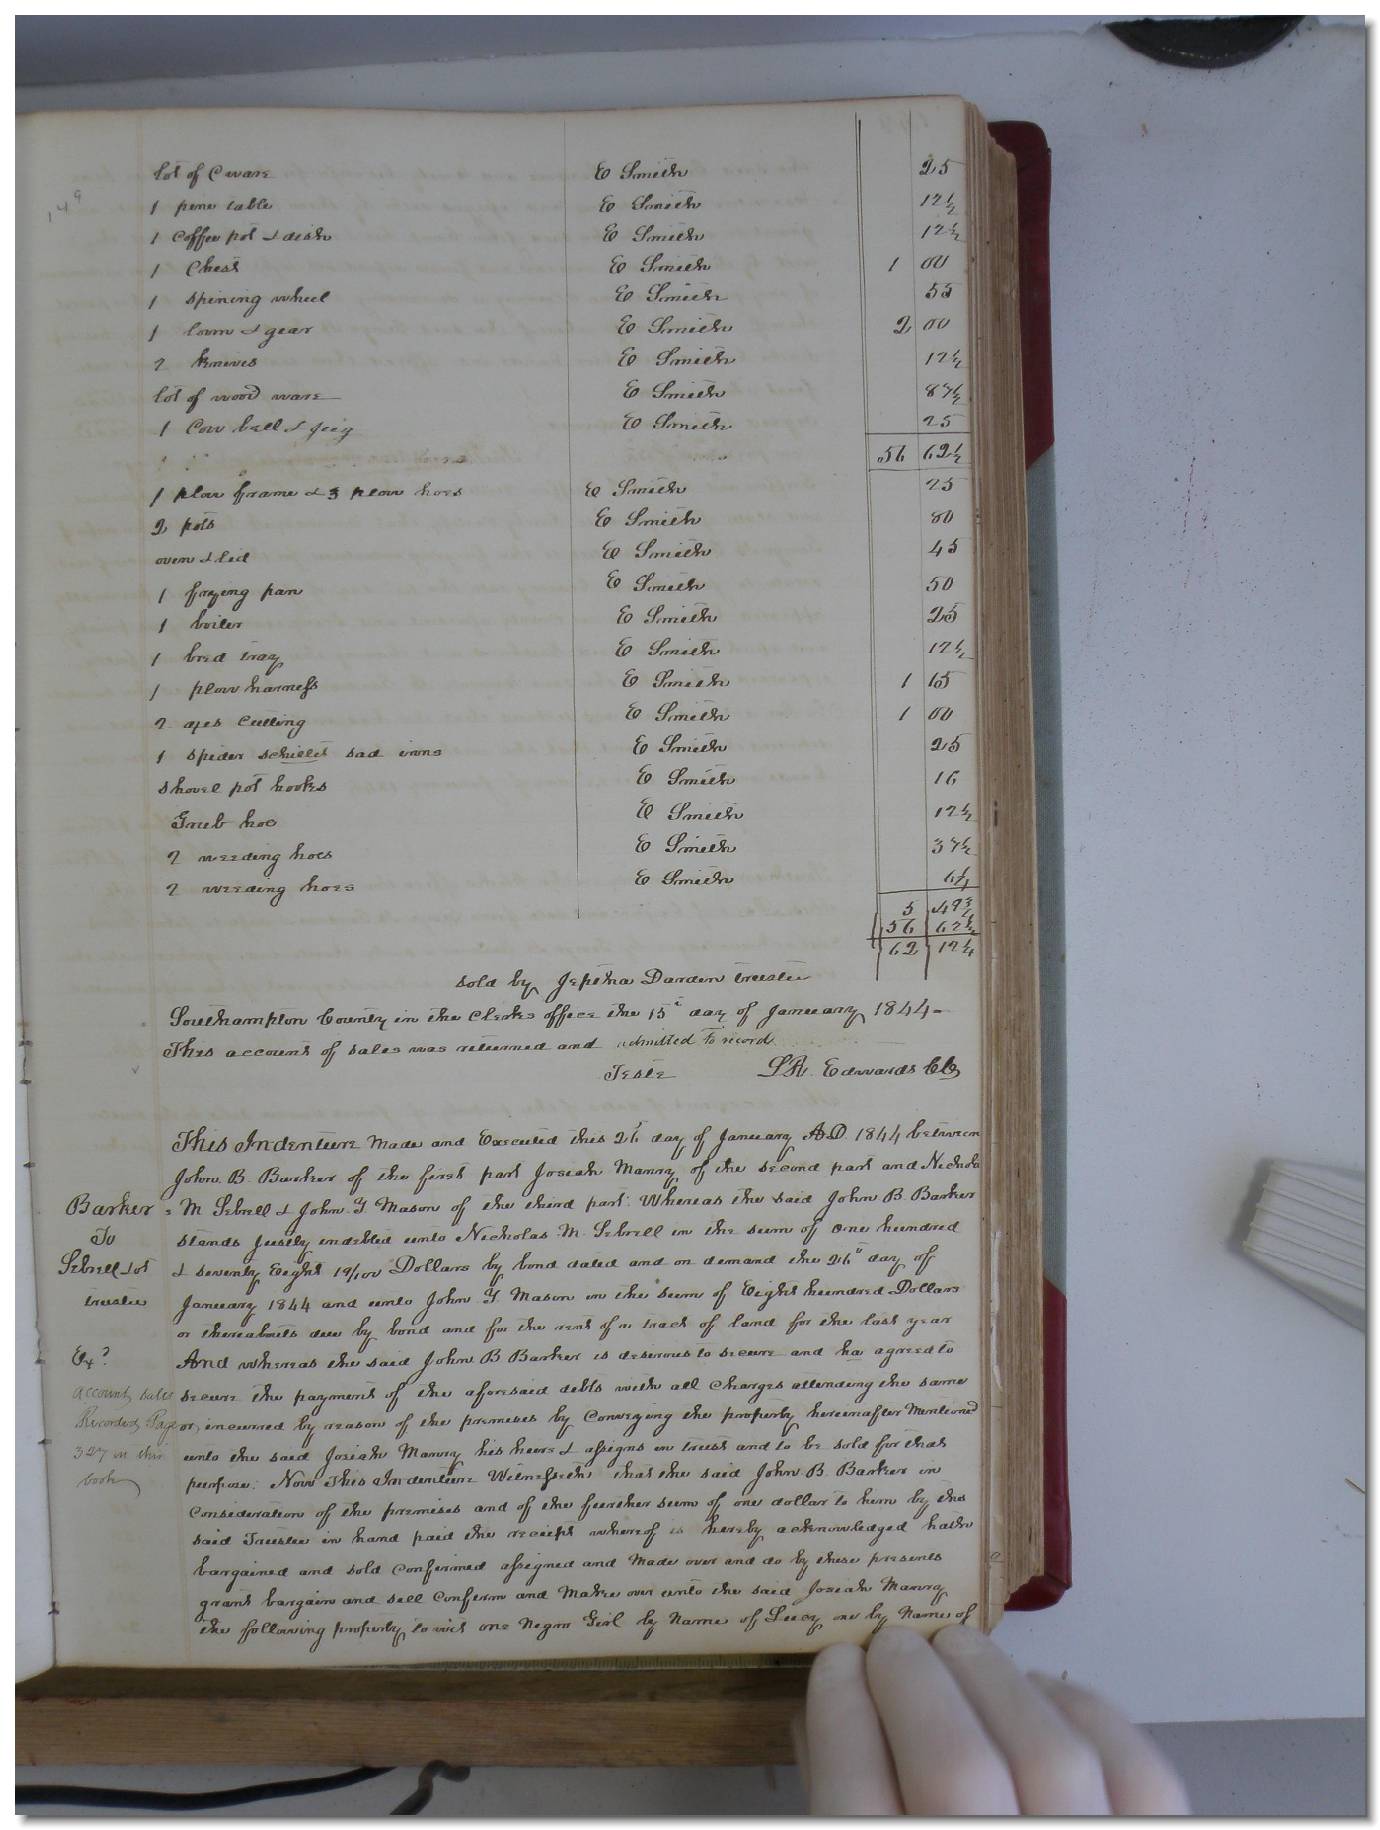 149
lot of C ware E Smith 25
1 pine table E Smith 12½
1 Coffee pot & dish E Smith 12½
1 Chest E Smith 1 00
1 spining wheel E Smith 55
1 loom & gear E Smith 2 00
2 knives E Smith 12½
lot of wood ware E Smith 87½
1 Cow bell & jug E Smith 25
56 62½
1 plow frame & 3 plow hoes E Smith 25
2 pots E Smith 80
oven & lid E Smith 45
1 frying pan E Smith 50
1 boiler E Smith 25
1 bred tray E Smith 12½
1 plow harness E Smith 1 15
2 axes Cutting E Smith 1 00
1 spider sad irons E Smith 25
shovel pot hooks E Smith 16
Grub hoe E Smith 12½
2 weeding hoes E Smith 37½
2 weeding hoes E Smith 6¼
5 49¾
56 62½
62 12¼
sold by Jeptha Darden trustee
Southampton County in the Clerks office the 15t day of January 1844-
This account of sales was returned and admitted to record
Teste LR Edwards CC
This Indenture Made and Executed this 26t day of January AD. 1844 between
John B. Barker of the first part Josiah Manry of the second part and Nichola
Barker = M Sebrell & John Y Mason of the third part. Whereas the said John B. Barker
To stands justly indebted unto Nicholas M. Sebrell in the sum of one hundred
Sebrell &ot & seventy Eight 19/100 Dollars by bond dated and on demand the 26" day of
trustee January 1844 and unto John Y Mason in the sum of Eight hundred Dollars
or thereabouts due by bond and for the rent of a tract of land for the last year
Ex? And whereas the said John B Barker is desirous to secure and ha agreed to
account sales secure the payment of the aforesaid debts with all Charges attending the same
Recorded Page or incurred by reason of the premises by Conveying the property hereinafter Mentioned
327 in this unto the said Josiah Manry his heirs & assigns in trust and to be sold for that
book purpose. Now This Indenture Witnesseth that the said John B. Barker in
Consideration of the premises and of the further sum of one dollar to him by the
said Trustee in hand paid the receipt whereof is hereby acknowledged hath
bargained and sold Confirmed assigned and Made over and do by these presents
grant bargain and sell Confirm and Make over unto the said Josiah Manry
the following property to wit one Negro Girl by Name of Lucy one by Name of